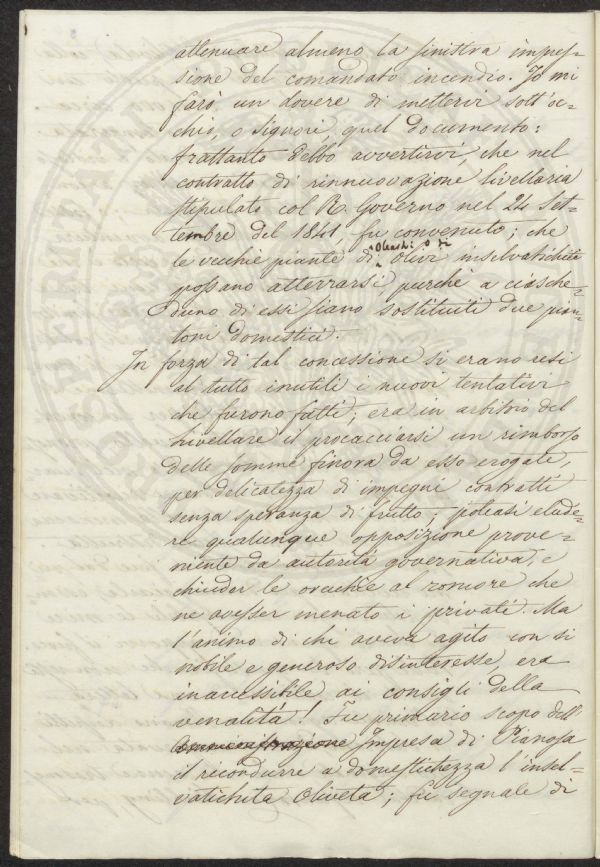 attenuare almeno la sinistra impres-
sione del comandato incendio. Io mi
farò un dovere di mettervi sott'oc-
chio, o Signori, quel documento:
frattanto debbo avvertirvi, che nel
contratto di rinnuovazione livellaria
stipulato col R. Governo nel 24 Set-
tembre del 1841, fu convenuto; che
le vecchie piante di Oleastri o di olivi insalvatichiti
possano atterrarsi purchè a ciasche-
duno di essi siano sostituiti due pian-
toni domestici.
In forza di tal concessione si erano resi
al tutto inutili i nuovi tentativi
che furono fatti; era in arbitrio del
livellare il procacciarsi un rimborso
delle somme finora da esso erogate,
per delicatezza di impegni contratti
senza speranza di frutto; poteasi elude-
re qualunque opposizione prove-
niente da autorità governativa, e
chiuder le orecchie al romore che
ne avesser menato i privati. Ma
l'animo di chi aveva agito con sì
nobile e generoso disinteresse, era
inaccessibile ai consigli della
venalità! Fu primario scopo dell'
Amministrazione Impresa di Pianosa
il ricondurre a domestichezza l'insal-
vatichita Oliveta; fu segnale di